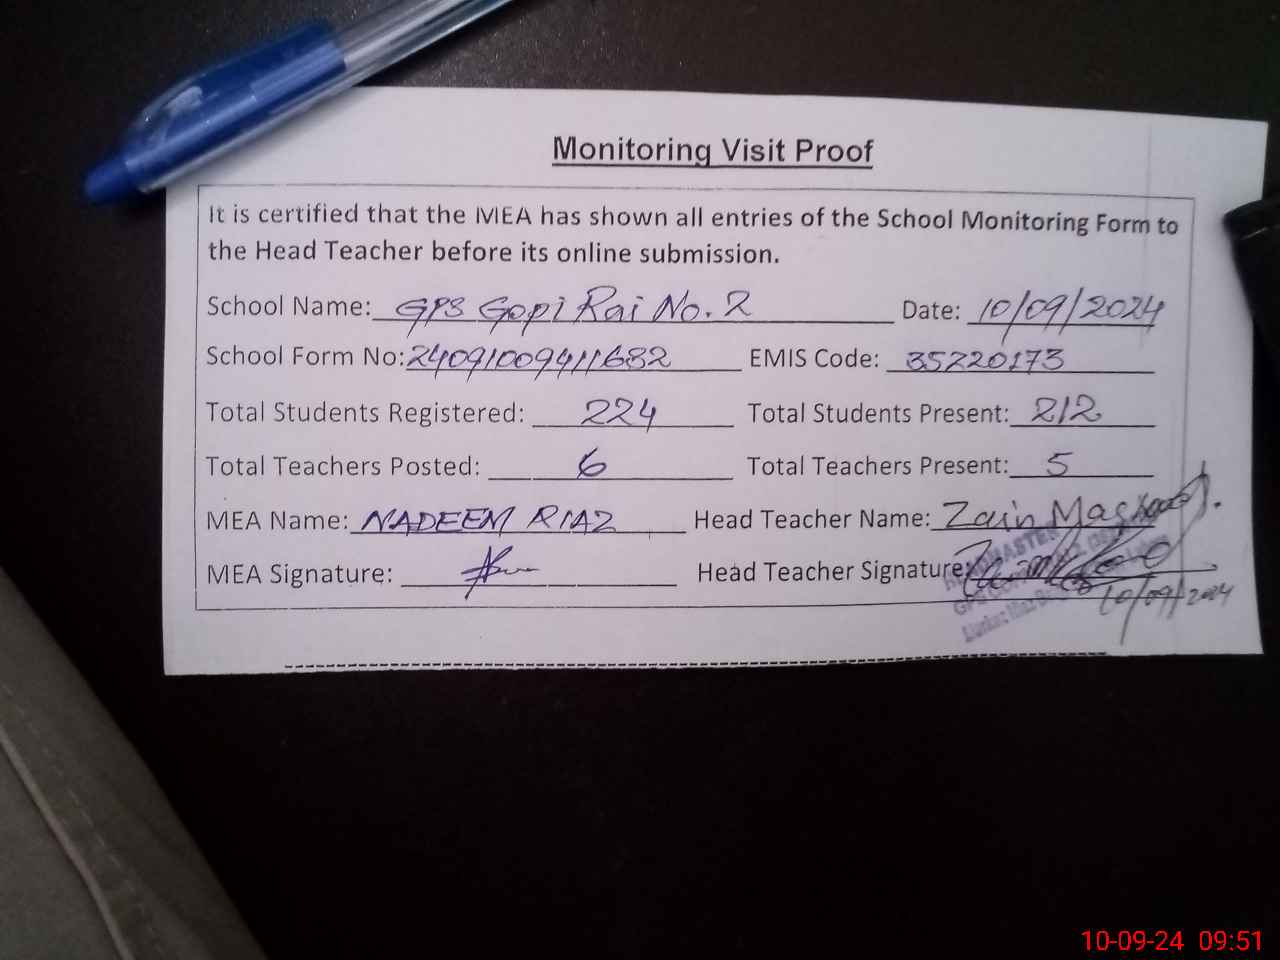 Monitoring Visit Proof
It is certified that the MEA has shown all entries of the School Monitoring Form to
the Head Teacher before its online submission.
School Name: GPS Gopi Rai No. 2 Date: 10/09/2024
School Form No: 24091009411682 EMIS Code: 35220173
Total Students Registered: 224 Total Students Present: 212
Total Teachers Posted: 6 Total Teachers Present: 5
MEA Name: NADEEM RIAZ Head Teacher Name: Zain
MEA Signature: Head Teacher Signature:
10/09/2024
10-09-24 09:51